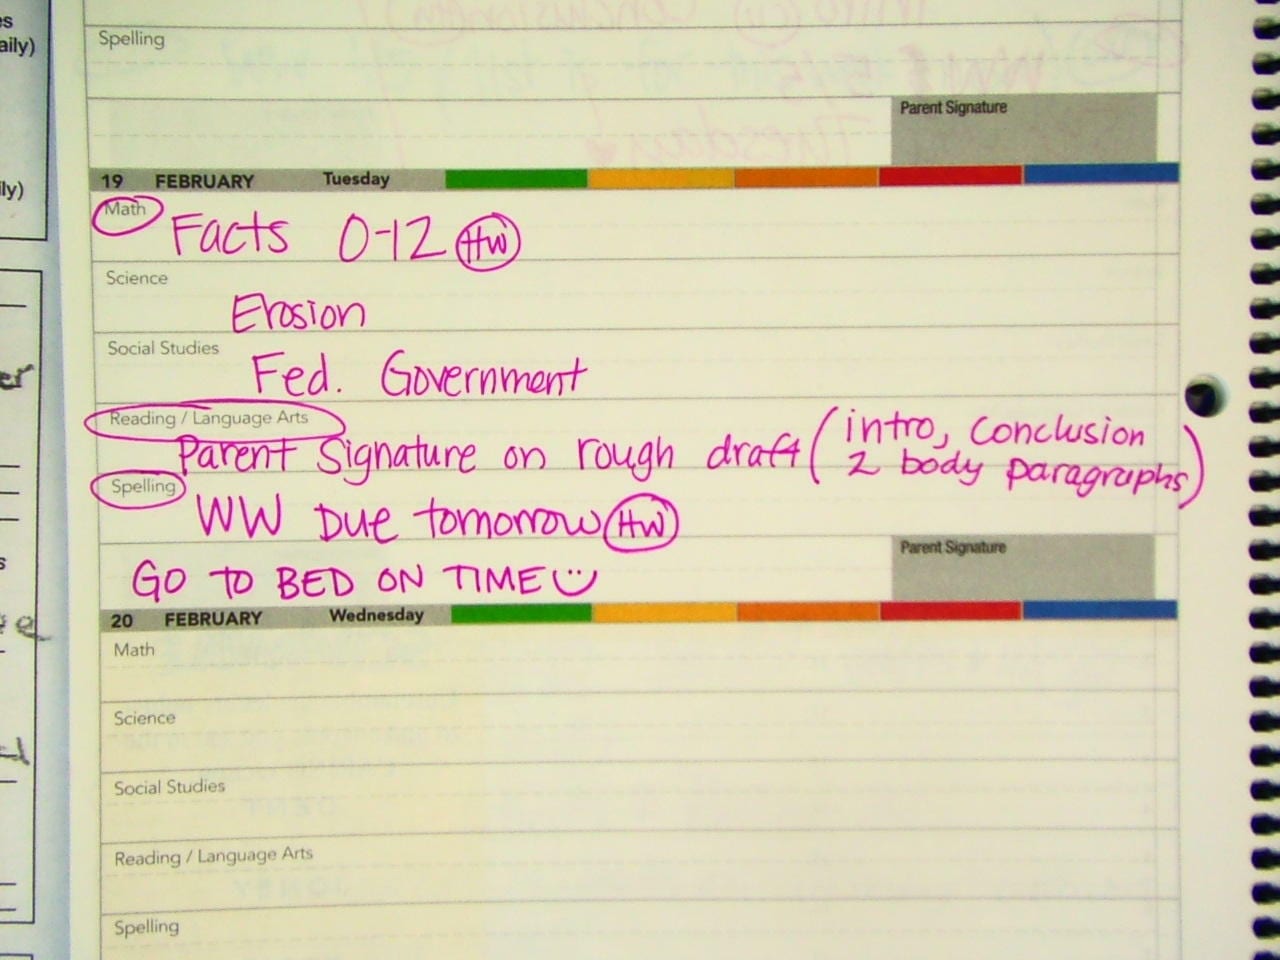 es
aily)
ly)
er
s
Spelling
Parent Signature
19 FEBRUARY Tuesday
Math Facts 0-12 HW
Science
Erosion
Social Studies
Fed. Government
Reading / Language Arts
Parent Signature on rough draft (intro, conclusion
2 body paragraphs)
Spelling
WW Due tomorrow HW
Parent Signature
GO TO BED ON TIME
20 FEBRUARY Wednesday
Math
Science
Social Studies
Reading / Language Arts
Spelling